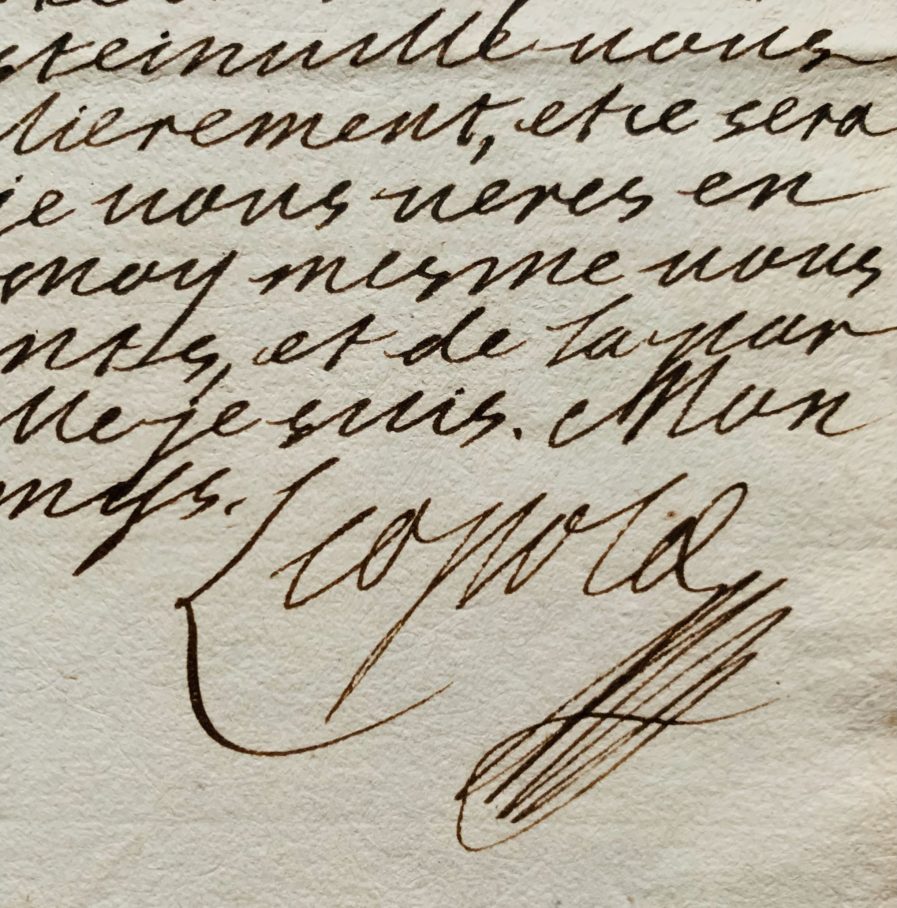 steinuille uous
lierement, et ce sera
je uous ueres en
moy mesme uous
nts, et de la par
lle je suis. Mon
mys.
Leopold